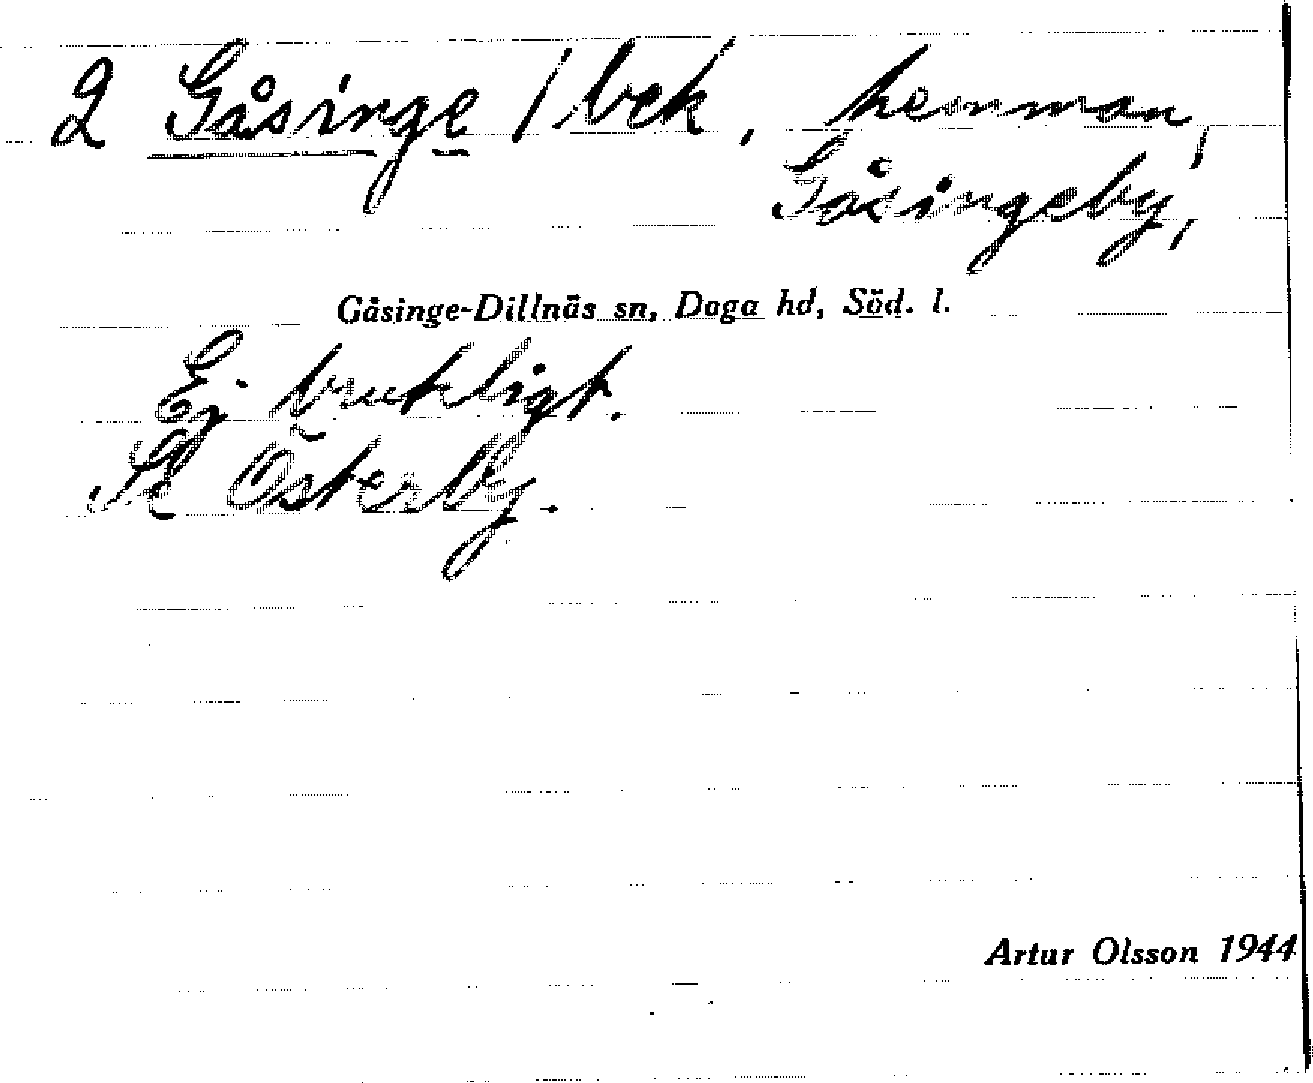 2 Gåsinge /bek. hemman,
Gåsingeby,
Gåsinge-Dillnäs sn, Daga hd, Söd. l.
Ej brukligt.
Se Österby.
Artur Olsson 1944